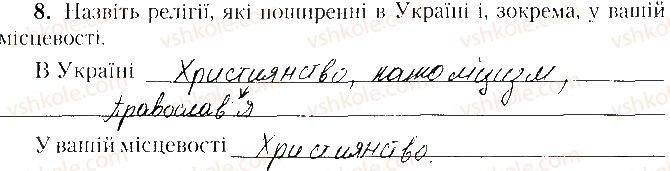 8. Назвіть релігії, які поширенні в Україні і, зокрема, у вашій
місцевості.
В Україні Християнство, католіцизм,
Православ'я
У вашій місцевості Християнство.